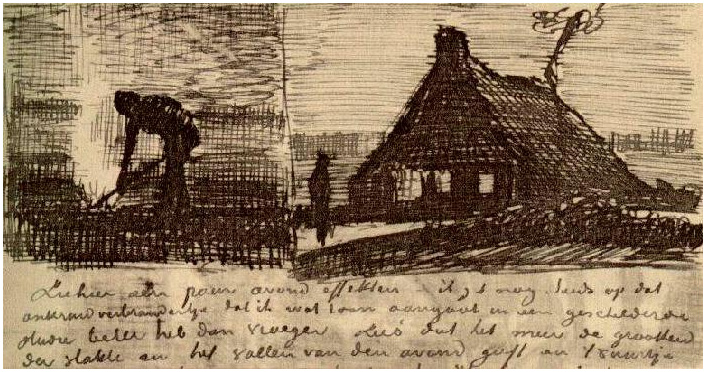 Ziehier een paar avond effekten – ik zit nog steeds op dat
onkruidverbrandertje dat ik wat toon aangaat in een geschilderde
studie beter heb dan vroeger Zoó dat het meer de grootheid
der vlakte en het vallen van den avond geeft en 't vuurtje